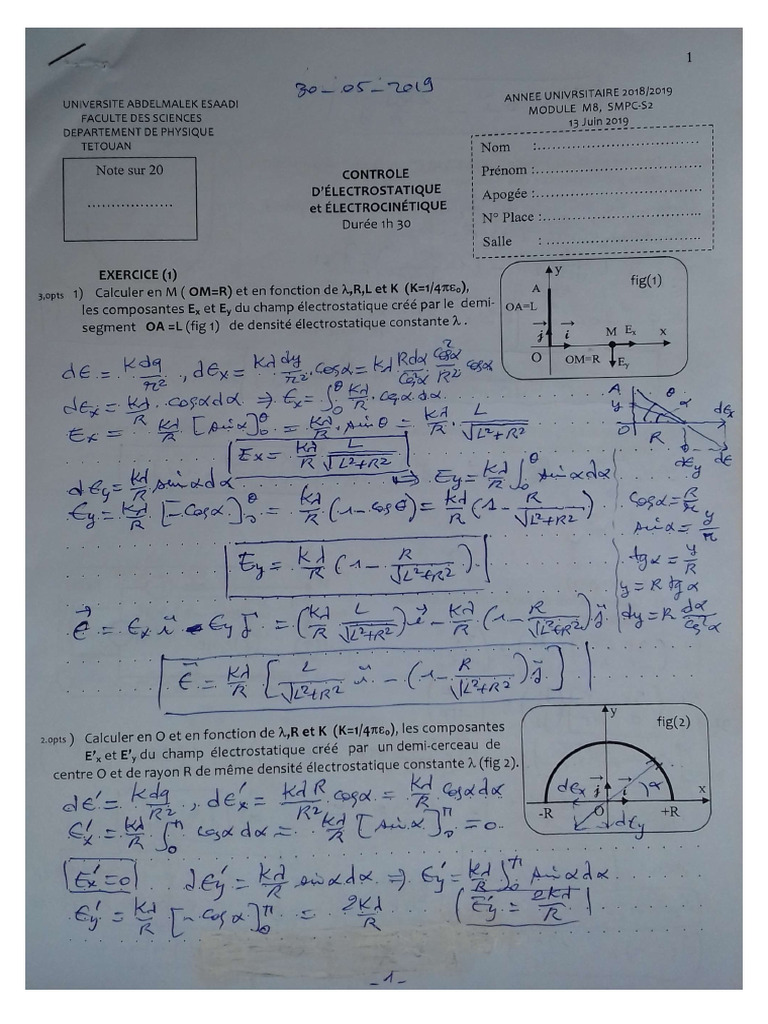 1
30-05-2019
UNIVERSITE ABDELMALEK ESAADI
FACULTE DES SCIENCES
DEPARTEMENT DE PHYSIQUE
TETOUAN
ANNEE UNIVRSITAIRE 2018/2019
MODULE M8, SMPC-S2
13 Juin 2019
Note sur 20
..................
CONTROLE
D'ÉLECTROSTATIQUE
et ÉLECTROCINÉTIQUE
Durée 1h 30
Nom :................................
Prénom :................................
Apogée :................................
N° Place :................................
Salle : ................................
EXERCICE (1)
3,0pts 1) Calculer en M ( OM=R) et en fonction de λ,R,L et K (K=1/4πε₀),
les composantes Ex et Ey du champ électrostatique créé par le demi-
segment OA =L (fig 1) de densité électrostatique constante λ .
y
fig(1)
A
OA=L
j i M Ex x
O OM=R Ey
dE = Kdq/r² , dEx = Kλ dy/r² . cosα = Kλ Rdα/cos²α cos²α/R² cosα
dEx = Kλ/R cosα dα ⇒ Ex = ∫₀^θ Kλ/R . cosα dα
Ex = Kλ/R [sinα]₀^θ = Kλ/R . sinθ = Kλ/R . L/√(L²+R²)
Ex = Kλ/R L/√(L²+R²)
dEy = Kλ/R sinα dα ⇒ Ey = Kλ/R ∫₀^θ sinα dα
Ey = Kλ/R [-cosα]₀^θ = Kλ/R (1-cosθ) = Kλ/R (1 - R/√(L²+R²))
Ey = Kλ/R (1 - R/√(L²+R²))
E = Ex i - Ey j = (Kλ/R L/√(L²+R²)) i - Kλ/R (1 - R/√(L²+R²)) j
E = Kλ/R [ L/√(L²+R²) i - (1 - R/√(L²+R²)) j ]
A θ
y α dEx
O R
dEy dE
cosα = R/r
sinα = y/r
tgα = y/R
y = R tgα
dy = R dα/cos²α
2.0pts ) Calculer en O et en fonction de λ,R et K (K=1/4πε₀), les composantes
E'x et E'y du champ électrostatique créé par un demi-cerceau de
centre O et de rayon R de même densité électrostatique constante λ (fig 2).
y
fig(2)
dEx j i α x
-R O +R
dEy
dE' = Kdq/R² , dE'x = KλR/R² cosα = Kλ/R cosα dα
E'x = Kλ/R ∫₀^π cosα dα = Kλ/R [sinα]₀^π = 0
E'x = 0 dE'y = Kλ/R sinα dα ⇒ E'y = Kλ/R ∫₀^π sinα dα
E'y = Kλ/R [-cosα]₀^π = 2Kλ/R E'y = 2Kλ/R
-1-